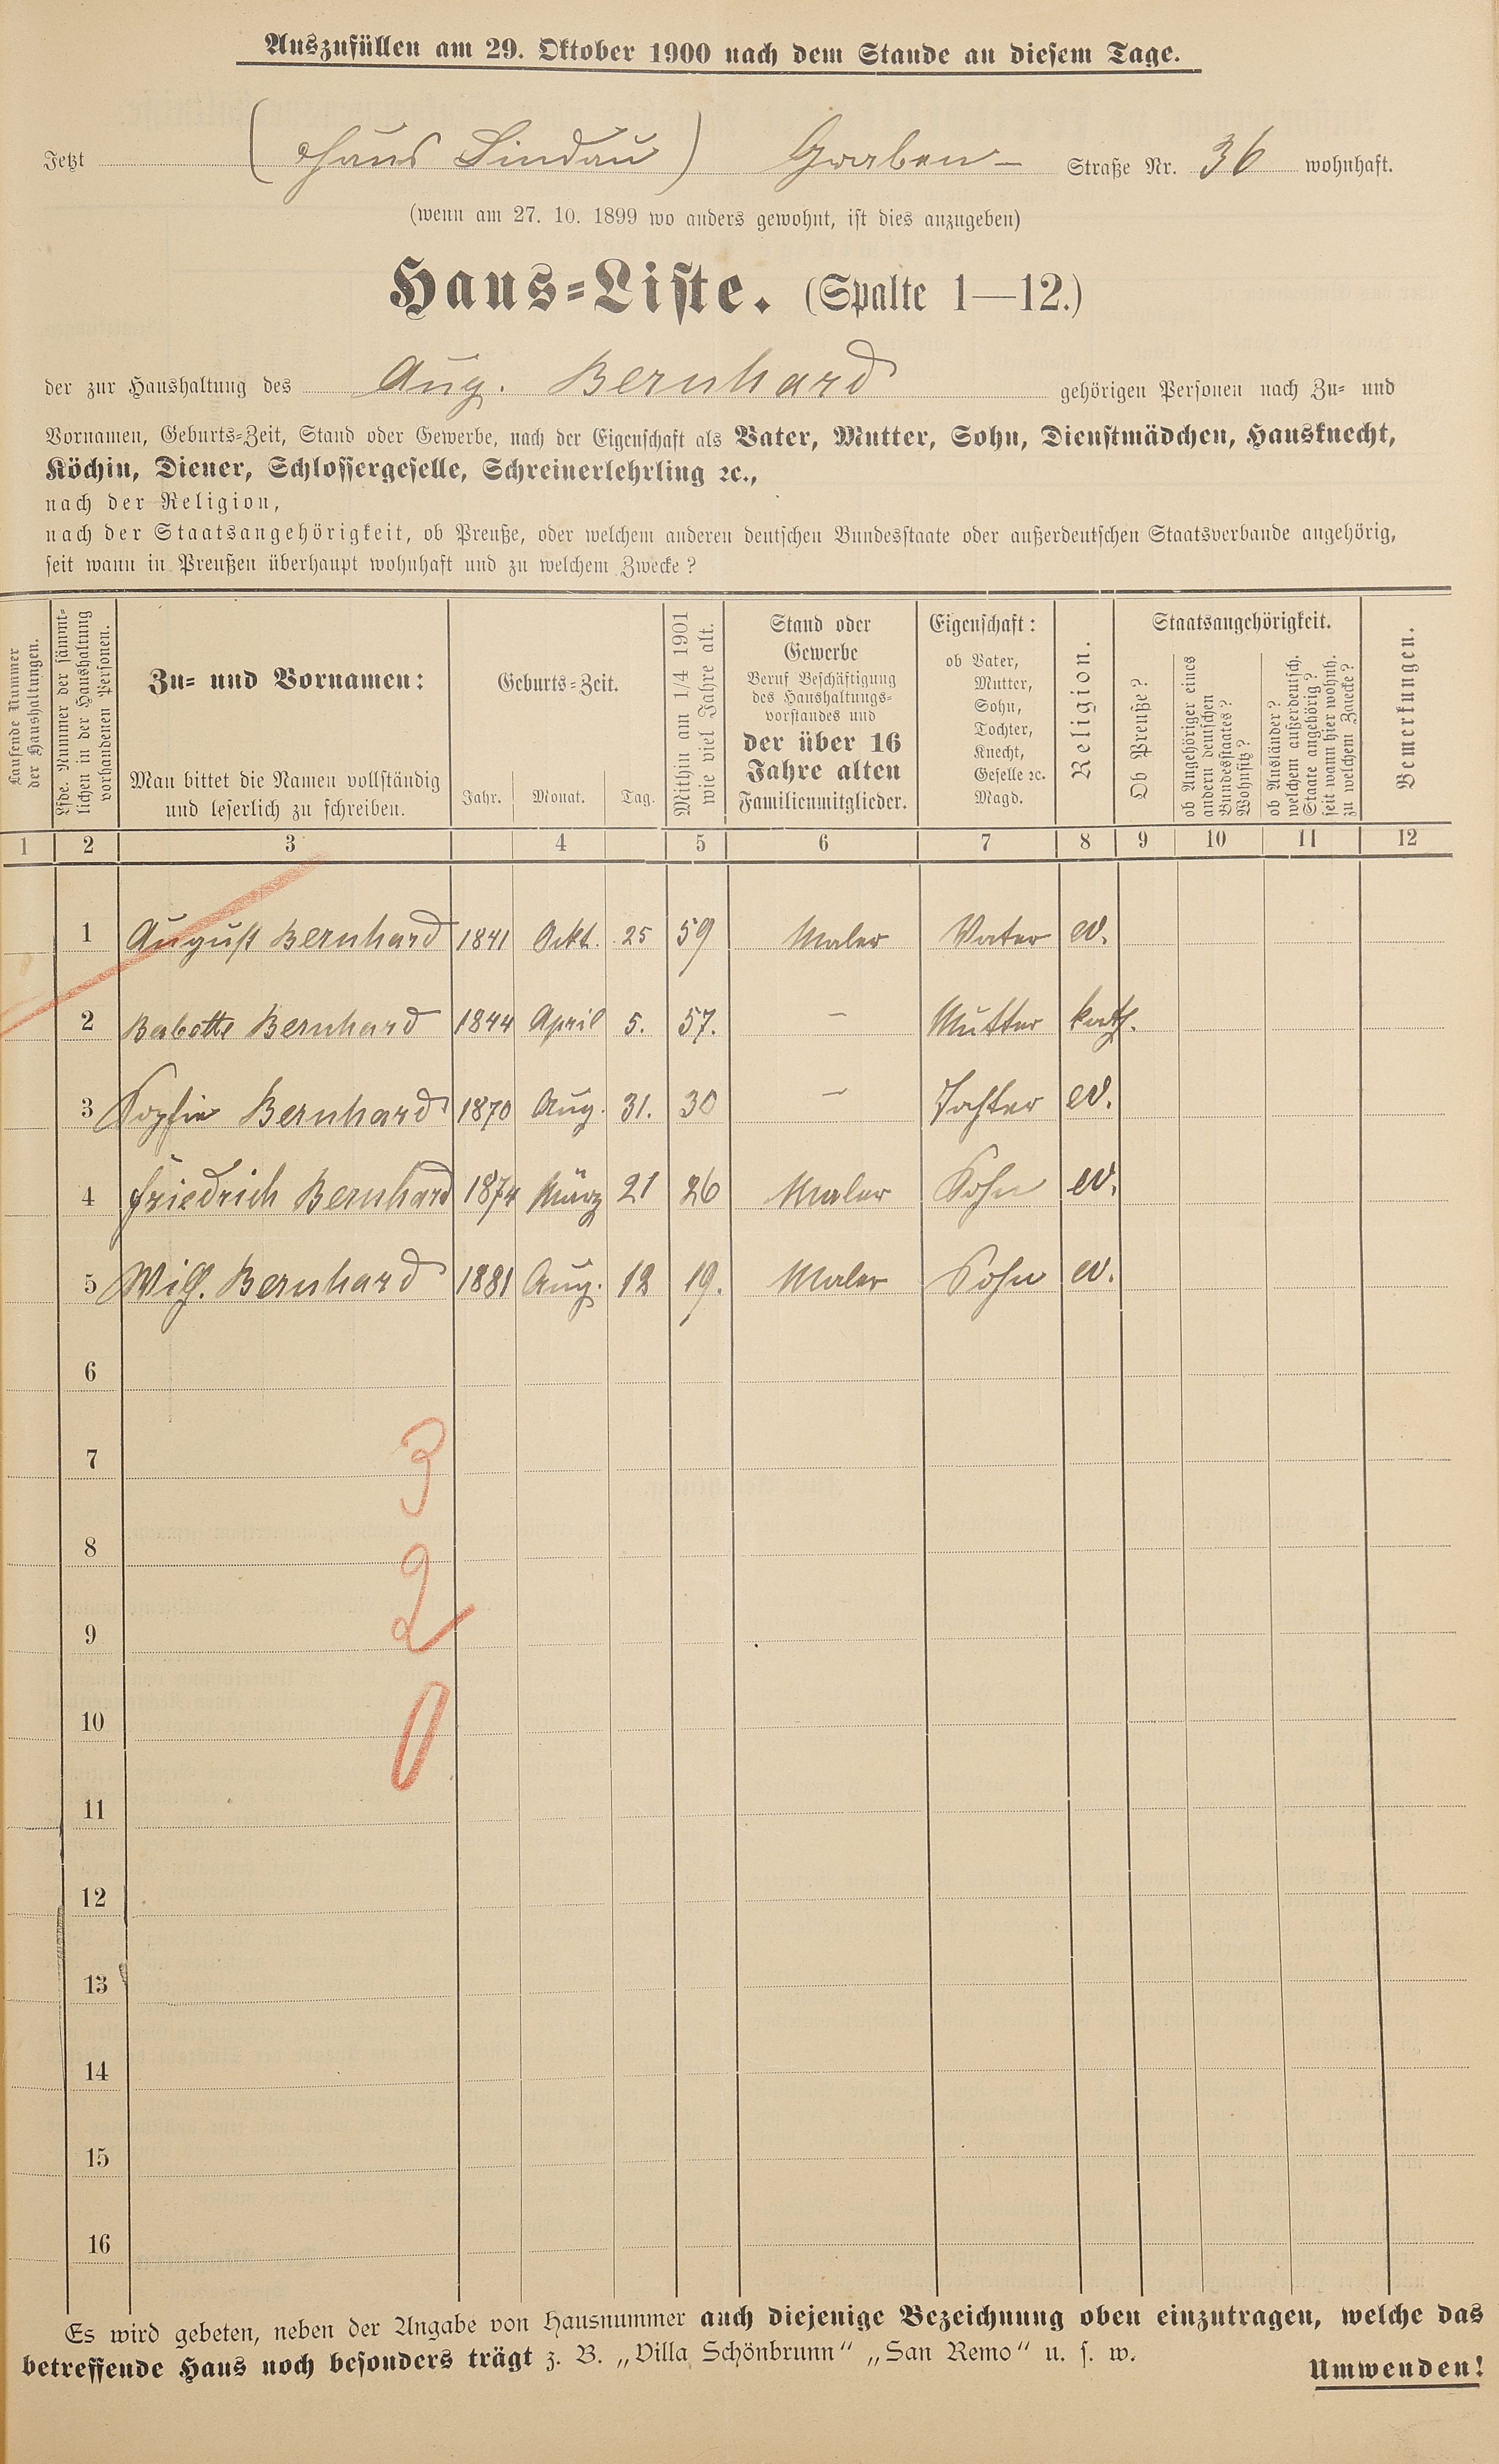 Auszufüllen am 29. Oktober 1900 nach dem Stande an diesem Tage.
Jetzt (Haus Lindau) Graben- Straße Nr. 36 wohnhaft.
(wenn am 27. 10. 1899 wo anders gewohnt, ist dies anzugeben)
Haus-Liste. (Spalte 1—12.)
der zur Haushaltung des Aug. Bernhard gehörigen Personen nach Zu- und
Vornamen, Geburts-Zeit, Stand oder Gewerbe, nach der Eigenschaft als Vater, Mutter, Sohn, Dienstmädchen, Hausknecht,
Köchin, Diener, Schlossergeselle, Schreinerlehrling ꝛc.,
nach der Religion,
nach der Staatsangehörigkeit, ob Preuße, oder welchem anderen deutschen Bundesstaate oder außerdeutschen Staatsverbande angehörig,
seit wann in Preußen überhaupt wohnhaft und zu welchem Zwecke?
Laufende Nummer
der Haushaltungen.
Lfde. Nummer der sämmt-
lichen in der Haushaltung
vorhandenen Personen.
Zu- und Vornamen:
Man bittet die Namen vollständig
und leserlich zu schreiben.
Geburts-Zeit.
Jahr. Monat. Tag.
Mithin am 1/4 1901
wie viel Jahre alt.
Stand oder
Gewerbe
Beruf Beschäftigung
des Haushaltungs-
vorstandes und
der über 16
Jahre alten
Familienmitglieder.
Eigenschaft:
ob Vater,
Mutter,
Sohn,
Tochter,
Knecht,
Geselle ꝛc.
Magd.
Religion.
Staatsangehörigkeit.
Ob Preuße?
ob Angehöriger eines
andern deutschen
Bundesstaates?
Wohnsitz?
ob Ausländer?
welchem außerdeutsch.
Staate angehörig?
seit wann hier wohnh.
zu welchem Zwecke?
Bemerkungen.
1 2 3 4 5 6 7 8 9 10 11 12
1 August Bernhard 1841 Ockt. 25 59 Maler Vater ev.
2 Babette Bernhard 1844 April 5. 57. — Mutter kath.
3 Sophie Bernhard 1870 Aug. 31. 30 — Tochter ev.
4 Friedrich Bernhard 1874 März 21 26 Maler Sohn ev.
5 Wilh. Bernhard 1881 Aug. 12 19. Maler Sohn ev.
6
7 3
8
9 2
10 0
11
12
13
14
15
16
Es wird gebeten, neben der Angabe von Hausnummer auch diejenige Bezeichnung oben einzutragen, welche das
betreffende Haus noch besonders trägt z. B. „Villa Schönbrunn“ „San Remo“ u. s. w.
Umwenden!